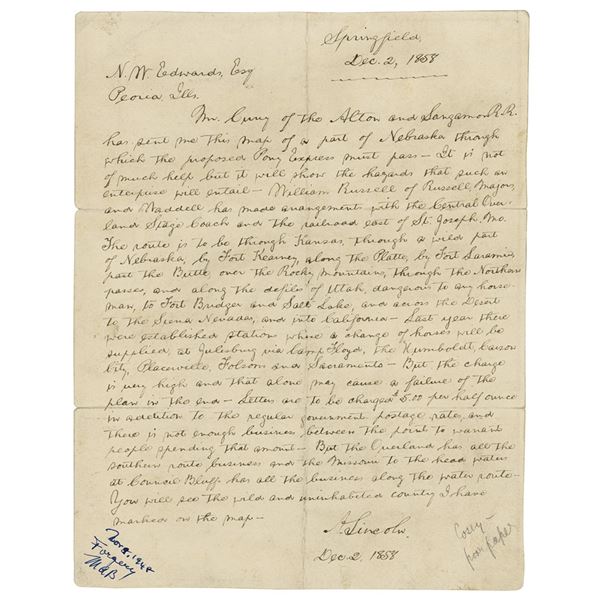 Springfield,
Dec. 2, 1858
N. W. Edwards, Esq
Peoria, Ills.
Mr. Curry of the Alton and Sangamon R.R.
has sent me this map of a part of Nebraska through
which the proposed Pony Express must pass — It is not
of much help but it will show the hazards that such an
enterprise will entail — William Russell of Russell, Majors,
and Waddell has made arangement with the Central Over-
land Stage Coach and the railroad east of St. Joseph, Mo.
The route is to be through Kansas, through a wild part
of Nebraska, by Fort Kearney, along the Platte, by Fort Laramie,
past the Butte over the Rocky Mountains, through the Northern
passes, and along the defiles of Utah, dangerous to any horse-
man, to Fort Bridger and Salt Lake, and across the Desert
to the Siena Nevada, and into California — Last year there
were established station where a change of horses will be
supplied at Julesburg via Camp Floyd, the Humboldt, Carson
City, Placerville, Folsom and Sacramento — But the charge
is very high and that alone may cause a failure of the
plan in the end — Letters are to be charged $5.00 per half ounce
in addition to the regular government postage rates, and
there is not enough business between the point to warant
people spending that amont — But the Overland has all the
southern route business and the Missouri to the head waters
at Council Bluff has all the business along the water route —
You will see the wild and uninhabited county I have
marked on the map —
A. Lincoln.
Dec. 2, 1858
1948
Forgery
M&B
Cosey —
poor paper